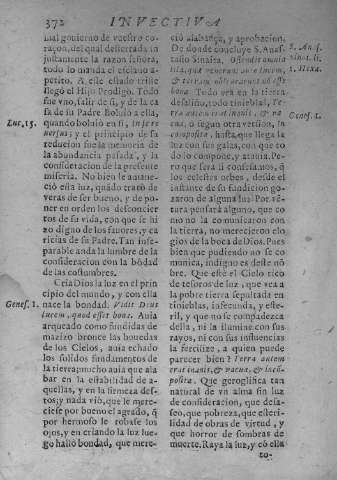 372 INVECTIVA
mal gouierno de vuestro co-
raçon, del qual desterrada in-
justamente la razon señora,
todo lo manda el esclauo a-
petito. A este estado triste
llegó el Hijo Prodigo. Todo
fue vno, salir de si, y de la ca
sa de su Padre. Boluió a ella,
Luc. 15. quando boluió en si, in se re
uersus; y el principio de su
reducion fue la memoria de
la abundancia passada, y la
consideracion de la presente
miseria. No bien le amane-
ció esta luz, quãdo trató de
veras de ser bueno, y de po-
ner en orden los desconcier
tos de su vida, con que se hi
zo digno de los fauores, y ca
ricias de su Padre. Tan inse-
parable anda la lumbre de la
consideracion con la bõdad
de las costumbres.
Cria Dios la luz en el prin
cipio del mundo, y con ella
Genes. 1. nace la bondad. Vidit Deus
lucem, quod esset bona. Auia
arqueado como fundidas de
mazizo bronce las bouedas
de los Cielos, auia echado
los solidos fundamentos de
la tierra; mucho auia que ala
bar en la estabilidad de a-
quellas, y en la firmeza des-
tos; y nada vió, que le mere-
ciesse por bueno el agrado, q̃
por hermoso le robasse los
ojos, y en criando la luz lue-
go halló bondad, que mere-
ció alabança, y aprobacion.
De donde concluye S. Anas
tasio Sinaita. Ostendit omnia
S. Anas.
Sina. li.
1. Hexa.
bona. Todo era en la tierra
desaliño, todo tinieblas, Te-
rra autem erat inanis, & va
Genes. 1.
cua, o segun otra version, in
composita, hasta que llega la
luz con sus galas, con que to
do lo compone, y atauia. Pe-
ro que será si confessamos, q̃
los celestes orbes, desde el
instante de su fundicion go-
zaron de alguna luz? Por vẽ-
tura será ajustado, que co-
mo no la comunicaron con
la tierra, no merecieron elo
gios de la boca de Dios. Pues
bien que pudiendo no se co
munica, indigno es deste nõ-
bre. Que esté el Cielo rico
de tesoros de luz, que vea a la
pobre tierra sepultada en
tinieblas, infecunda, y este-
ril, y que no se compadezca
della, ni la ilumine con sus
rayos, ni con sus influencias
la fertilize, a quien puede
parecer bien? Terra autem
erat inanis, & vacua, & incõ-
posita. Que geroglifica tan
natural de vn alma sin luz
de consideracion, que desa-
seo, que pobreza, que esteri-
lidad de obras de virtud, y
que horror de sombras de
muerte. Raya la luz, y cõ ella
to-